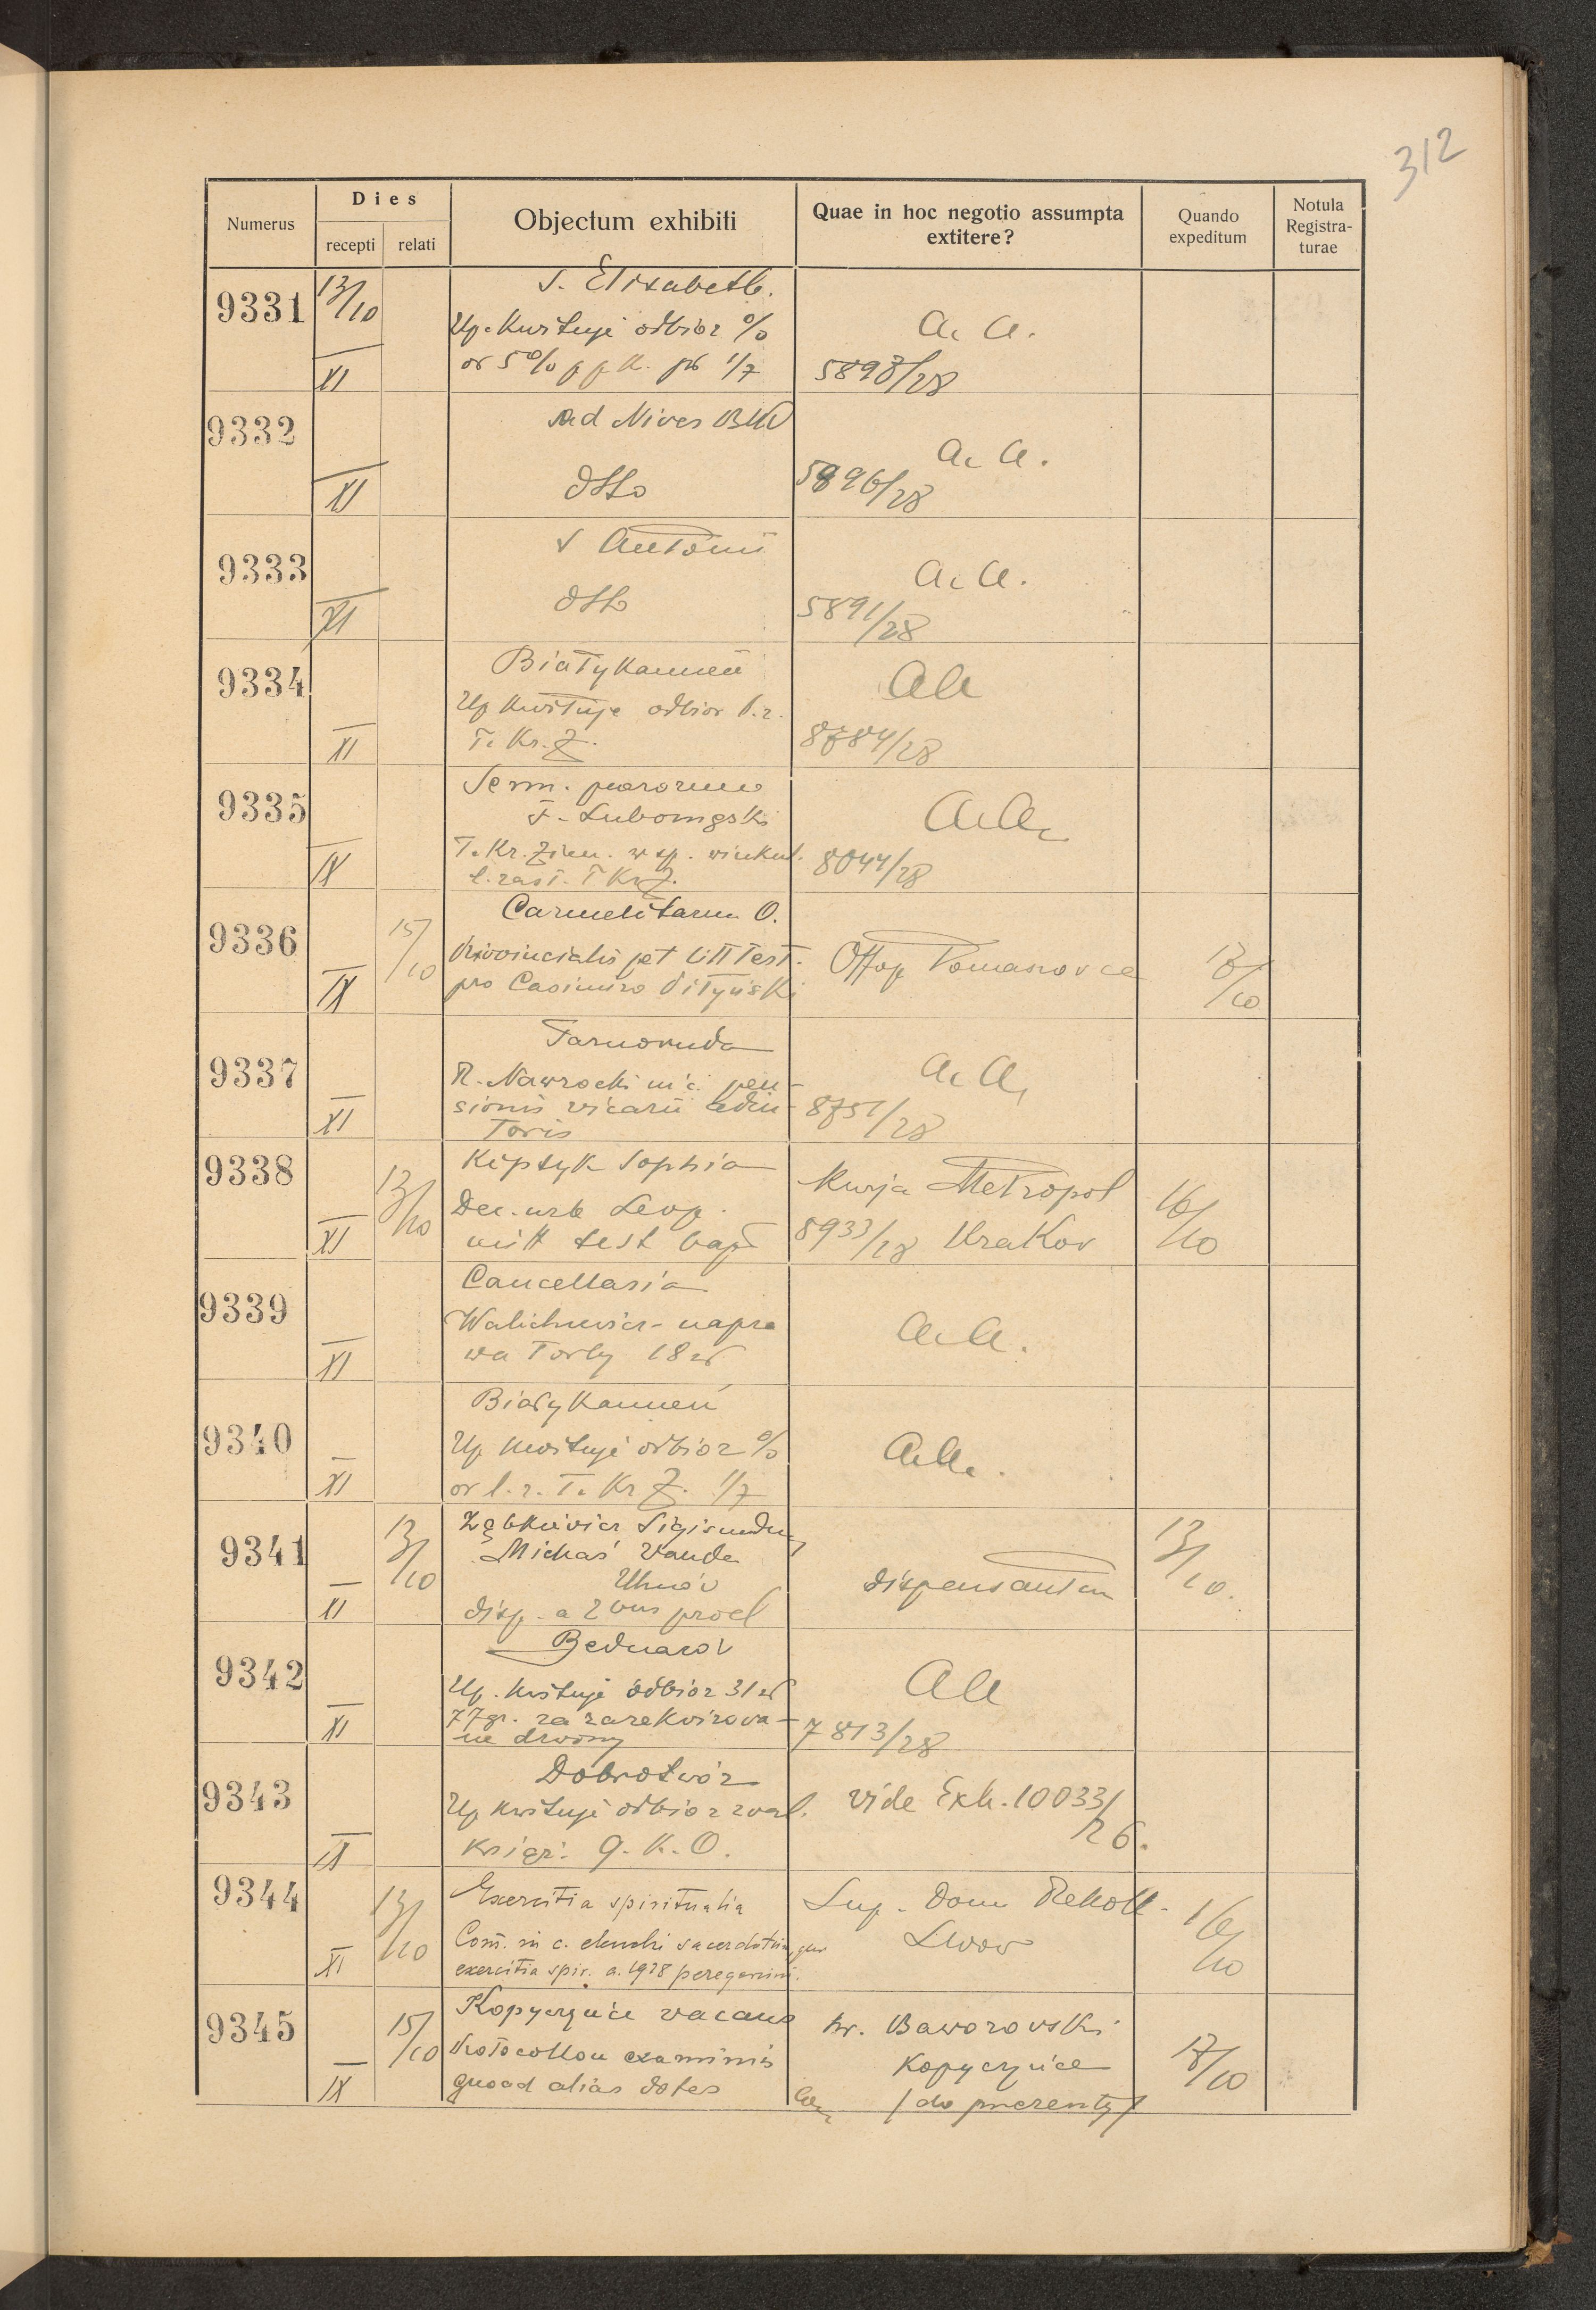 312
Numerus
Dies
recepti
relati
Objectum exhibiti
Quae in hoc negotio assumpta
extitere?
Quando
expeditum
Notula
Registra-
turae
9331
13/10
XI
S. Elisabeth.
Up. kwituje odbiór %
od 5%
1/7
a. a.
5893/28
9332
XI
ad Nives BMV
dtto
a. a.
5896/28
9333
XI
S Antonii
dtto
a. a.
5891/28
9334
XI
Biały Kamień
Up kwituje odbiór l. z.
T. Kr. Z.
aa
8784/28
9335
IX
Sem. puerorum
F. Lubomęski
T. Kr. Ziem. w sp. winkul.
l. zast. T Kr Z.
a. a.
8044/28
9336
IX
15/10
Carmelitarum O.
Provincialis pet litt test.
pro Casimiro
Offop Tomasovce
17/10
9337
XI
Tarnoruda
R. Nawrocki in c. pen-
sionis vicarii adiu-
toris
a. a.
8751/28
9338
XI
13/10
Kiptyk Sophia
Dec. urb Leop.
mitt test bapt
Kurja Metropol
8933/28 Krakov
16/10
9339
XI
Cancellaria
Walichiewicz - napra
wa torby 18 zł
a. a.
9340
XI
Biały Kamień
Up kwituje odbiór %
od l. z. T. Kr Z. 1/7
a. a.
9341
XI
13/10
Ząbkiewicz Sigismundus
Michaś Vanda
Uhnów
disp. a 2bus procl
dispensantur
13/10.
9342
XI
Bednarów
Up. kwituje odbiór 31 zł
77 gr. za zarekwirowa-
ne dzwony
aa
7813/28
9343
IX
Dobrotwór
Up kwituje odbiór zwal.
książ. P. K. O.
vide Exh. 10033/
26.
9344
XI
13/10
Exercitia spiritualia
Com. in c. elenchi sacerdotum, qui
exercitia spir. a. 1928 peregerunt.
Sup. Dom Rekoll.
Lwów
16/10
9345
IX
15/10
Kopyczyńce vacans
Protocollon examinis
quoad alias dotes
hr. Baworovski
Kopyczyńce
/do prezenty/
17/10